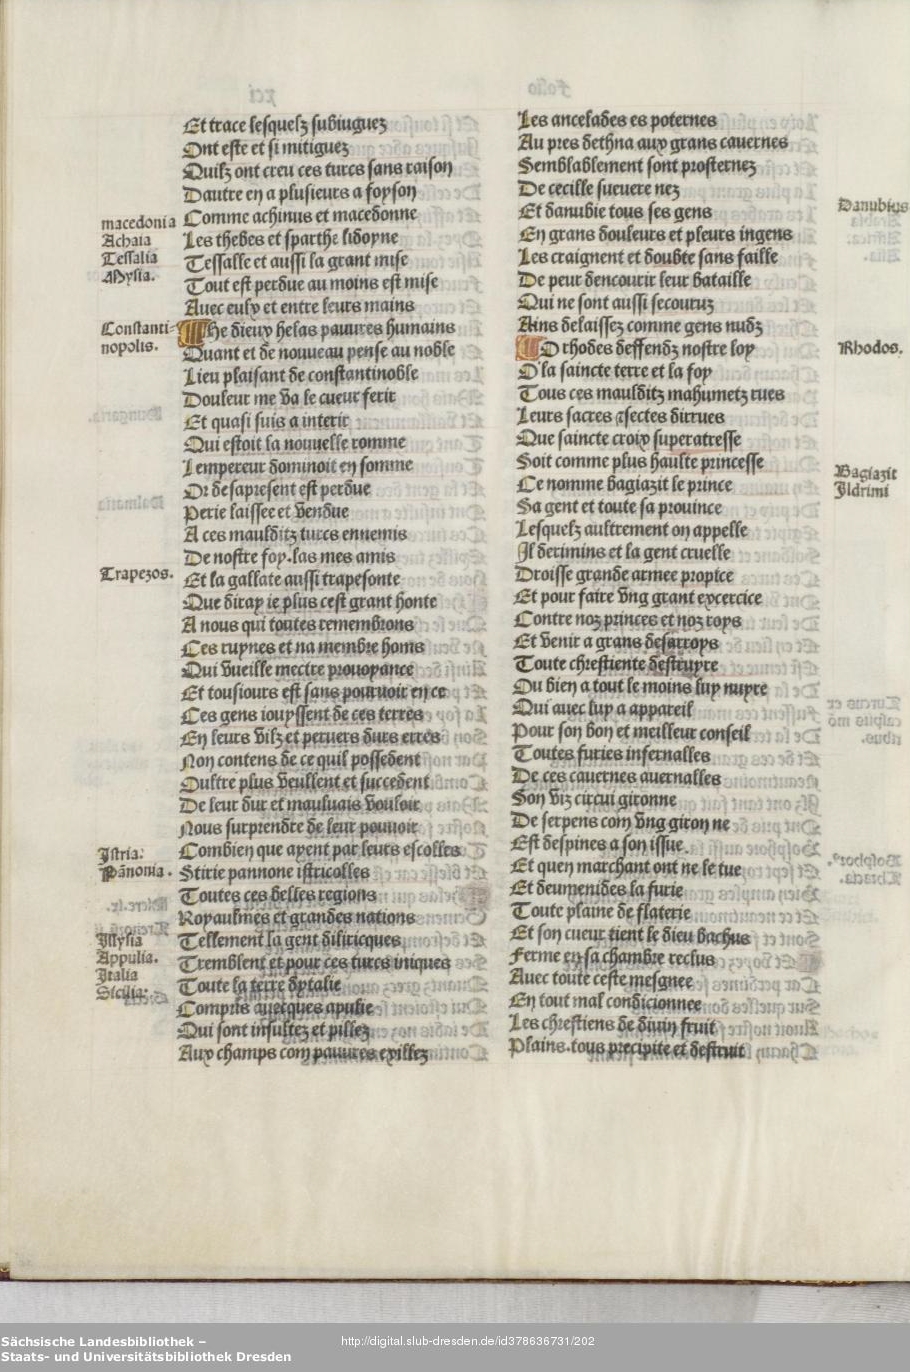 Et trace lesquelz subiuguez
Ont este et si mitiguez
Quilz ont creu ces turcs sans raison
Dautre en a plusieurs a foyson
macedonia
Comme achinus et macedonne
Achaia
Les thebes et sparthe lidoyne
Tessalia
Tessalle et aussi la grant mise
Mysia.
Tout est perdue au moins est mise
Avec eulx et entre leurs mains
Constanti-
nopolis.
He dieux helas pauures humains
Quant et de nouueau pense au noble
Lieu plaisant de constantinoble
Douleur me va le cueur ferir
Et quasi suis a interir
Qui estoit la nouuelle romme
Lempereur dominoit en somme
Or desapresent est perdue
Perie laissee et vendue
A ces maulditz turcs ennemis
De nostre foy.las mes amis
Trapezos.
Et la gallate aussi trapesonte
Que diray ie plus cest grant honte
A nous qui toutes remembrons
Ces ruynes et na membre homs
Qui vueille mectre prouoyance
Et tousiours est sans pouruoir en ce
Ces gens iouyssent de ces terres
En leurs vilz et peruers durs erres
Non contens de ce quil possedent
Oultre plus veullent et succedent
De leur dur et mauluais vouloir
Nous surprendre de leur pouuoir
Istria:
Combien que ayent par leurs escolles
Pãnonia.
Stirie pannone istricolles
Toutes ces belles regions
Royaulmes et grandes nations
Illysia
Tellement la gent diliricques
Appulia.
Tremblent et pour ces turcs iniques
Italia
Toute la terre dytalie
Sicilia:
Compris auecques apulie
Qui sont insultez et pillez
Aux champs com pauures exillez
Les ancelades es poternes
Au pres dethna aux grans cauernes
Semblablement sont prosternez
De cecille sueuere nez
Danubius
Et danubie tous ses gens
En grans douleurs et pleurs ingens
Les craignent et doubte sans faille
De peur dencourir leur bataille
Qui ne sont aussi secouruz
Ains delaissez comme gens nudz
Rhodos.
O rhodes deffendz nostre loy
O la saincte terre et la foy
Tous ces maulditz mahumetz rues
Leurs sacres ⁊sectes dirrues
Que saincte croix superatresse
Soit comme plus haulte princesse
Bagiazit
Ildrimi
Ce nomme bagiazit le prince
Sa gent et toute sa prouince
Lesquelz aultrement on appelle
Il derimins et la gent cruelle
Droisse grande armee propice
Et pour faire vng grant excercice
Contre noz princes et noz roys
Et venir a grans desarroys
Toute chrestiente destruyre
Ou bien a tout le moins luy nuyre
Qui auec luy a appareil
Pour son bon et meilleur conseil
Toutes furies infernalles
De ces cauernes auernalles
Son viz circui gironne
De serpens com vng giron ne
Est despines a son issue.
Et quen marchant ont ne le tue
Et deumenides la furie
Toute plaine de flaterie
Et son cueur tient le dieu bachus
Ferme en sa chambre reclus
Avec toute ceste mesgnee
En tout mal condicionnee
Les chrestiens de diuin fruit
Plains.tous precipite et destruit
Sächsische Landesbibliothek –
Staats- und Universitätsbibliothek Dresden
http://digital.slub-dresden.de/id378636731/202